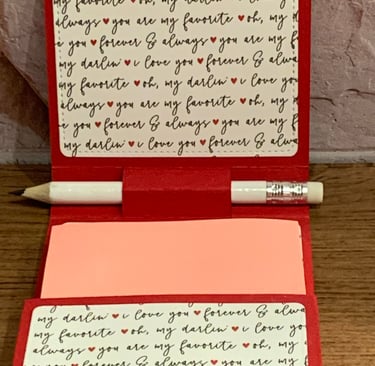 my favorite ♥ oh, my darlin' ♥ i
always ♥ you are my favorite ♥ oh, my
e you ♥ forever & always ♥ you are my f
my darlin' ♥ i love you ♥ forever &
my favorite ♥ oh, my darlin' ♥ i love you
always ♥ you are my favorite ♥ oh, my
e you ♥ forever & always ♥ you are my f
my darlin' ♥ i love you ♥ forever &
my darlin' ♥ i love you ♥ forever & alway
my favorite ♥ oh, my darlin' ♥ i love yo
always ♥ you are my favorite ♥ oh, my
you ♥ forever & always ♥ you are my